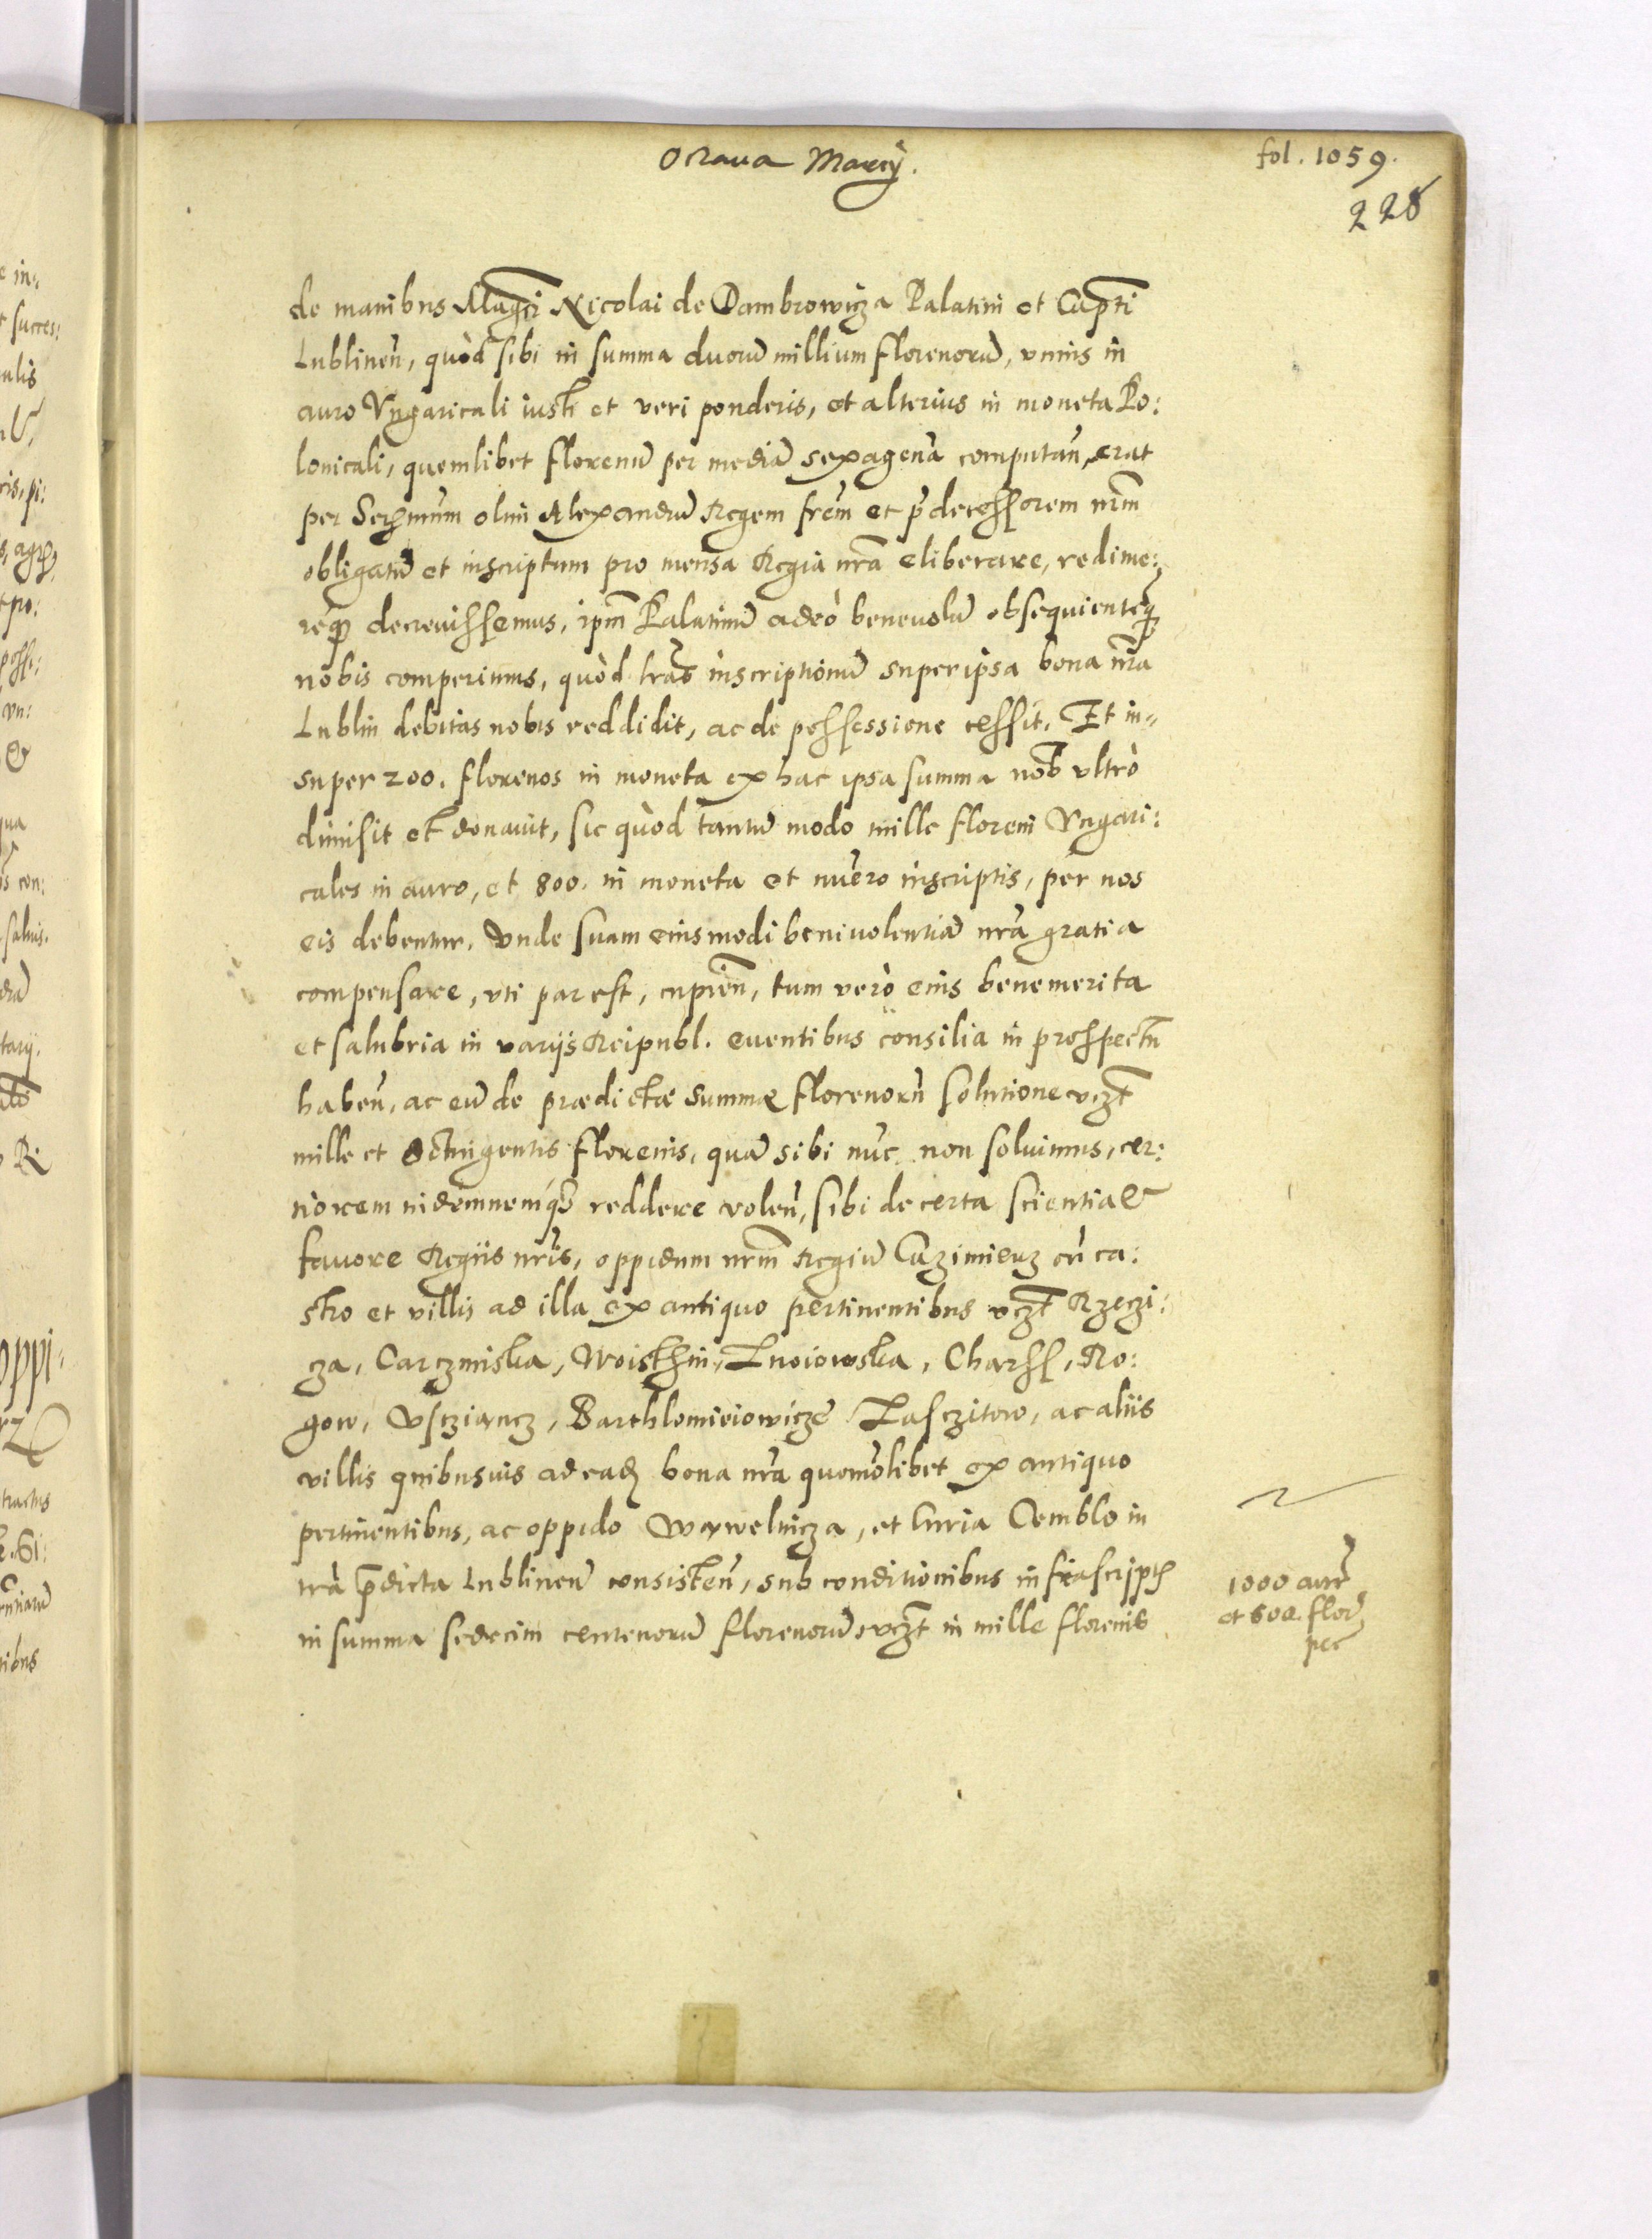 Octaua Marcÿ.
fol. 1059.
228
de manibus Magci Nicolai de Dambrowicza Palatini et Capti
Lublinen̄, quòd sibi in summa duorū millium florenorū, vnius in
auro Vngaricali iusti et veri ponderis, et alterius in moneta Po:
lonicali, quemlibet florenū per mediā sexagenā computan̄, erat
per Sermum olim Alexandrū Regem frēm et p̄decessorem nrm̄
obligatū et inscriptum pro mensa Regia nrā eliberare, redime:
req3 decreuissemus, ipm̄ Palatinū adeò beneuolū obsequientēq3
nobis comperimus, quòd lrās inscriptionū super ipsa bona nrā
Lublin debitas nobis reddidit, ac de possessione cessit. Et in-
super 200. florenos in moneta ex hac ipsa summa nob ultrò
dimisit et donauit, sic quòd tantū modo mille floreni Vngari:
cales in auro, et 800. in moneta et nuēro inscriptis, per nos
eis debentur. Vnde suam eiusmodi beniuolentiā nrā gratia
compensare, vti par est, cupien̄, tum verò eius benemerita
et salubria in varijs Reipubl. euentibus consilia in prospectu
haben̄, ac eū de prædictæ summæ florenorū solutione vczt
mille et octingentis florenis, quā sibi nūc non soluimus, cer:
tiorem indemnemq3 reddere volen̄, sibi de certa scientia &
fauore Regiis nrīs, oppidum nrm̄ Regiū Cazimierz cū ca:
stro et villis ad illa ex antiquo pertinentibus vczt Rzeczi:
cza, Carczmiska, Woiskzin, Lnoiowska, Charss, Ro:
gow, Vscziancz, Barthlomieiowicze, Lasczitow, ac aliis
villis quibusuis ad ead bona nrā quomolibet ex antiquo
pertinentibus, ac oppido Waxwelnicza, et curia Cemblo in
trā p̄dicta Lublinen̄ consisten̄, sub conditionibus infrascriptis
in summa sedecim centenorū florenorū, vczt in mille florenis
1000 aur
et 600. flor
pec